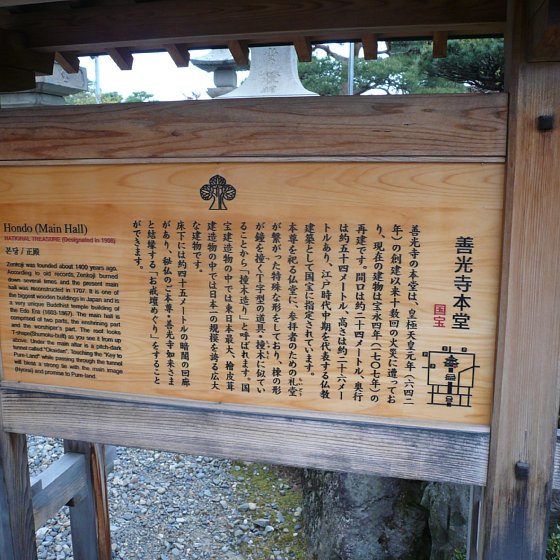 善光寺本堂
国宝
善光寺の本堂は、皇極天皇元年(六四二
年)の創建以来十数回の火災に遭ってお
り、現在の建物は宝永四年(一七〇七年)の
再建です。間口は約二十四メートル、奥行
は約五十四メートル、高さは約二十六メー
トルあり、江戸時代中期を代表する仏教
建築として国宝に指定されています。
本尊を祀る仏堂に、参拝者のための礼堂
が繋がった特殊な形をしており、棟の形
が鐘を撞く丁字型の道具・撞木に似てい
ることから「撞木造り」と呼ばれます。国
宝建造物の中では東日本最大、檜皮葺
建造物の中では日本一の規模を誇る広大
な建物です。
床下には約四十五メートルの暗闇の回廊
があり、秘仏のご本尊・善光寺如来さま
と結縁する「お戒壇めぐり」をすること
ができます。
Hondo (Main Hall)
NATIONAL TREASURE (Designated in 1908)
본당 / 正殿
Zenkoji was founded about 1400 years ago.
According to old records, Zenkoji burned
down several times and the present main
hall was reconstructed in 1707. It is one of
the biggest wooden buildings in Japan and is
a very unique Buddhist temple building of
the Edo Era (1603-1867). The main hall is
comprised of two parts, the enshrining part
and the worshiper's part. The roof is
T-shape(Shumoku-built) as you see it from up
above. Under the main hall is a pitch-dark
tunnel called "Okaidan". Touching the "Key to
Pure-Land" while passing through the tunnel
means having a strong tie with the main image
(Nyorai) and promise to Pure-land.